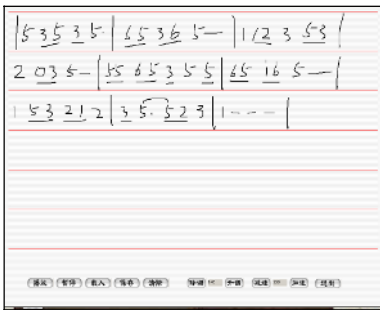 |5 3 5 3 5·|6 5 3 6 5—|1 1 2 3 5 3|
2 0 3 5—|5 5 6 5 3 5 5|6 5 1 6 5—|
1 5 3 2 1 2|3 5· 5 2 3|1---|
播放 暂停 载入 保存 清除 降调 升调 减速 加速